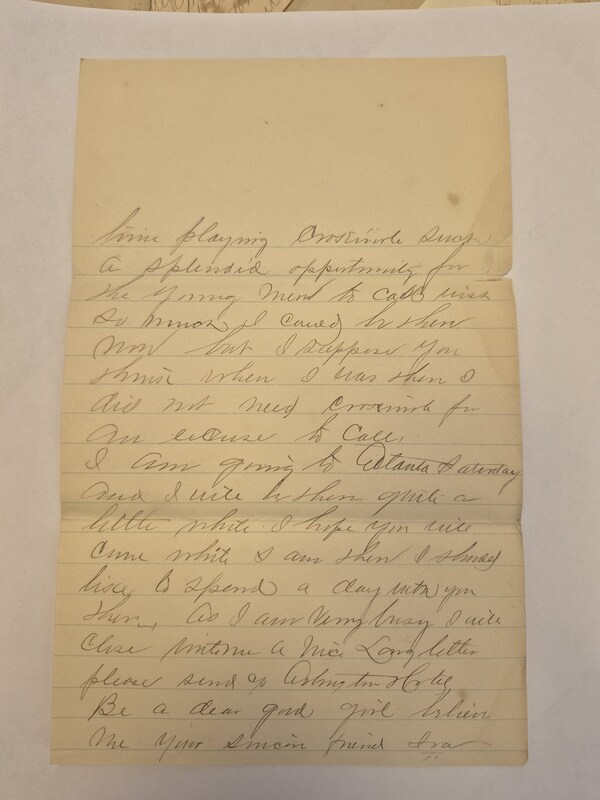 time playing Crokinole such
a splendid opportunity for
the young men to call wish
so much I could be there
now but I suppose you
think when I was there I
did not need Crokinole for
an excuse to call.
I am going to Saturday
and I will be there quite a
little while. I hope you will
come while I am there I should
like to spend a day with you
there, As I am very busy I will
close write me a nice Long letter
please send Arlington Hotel
Be a dear good girl believe
me your sincere friend Ira